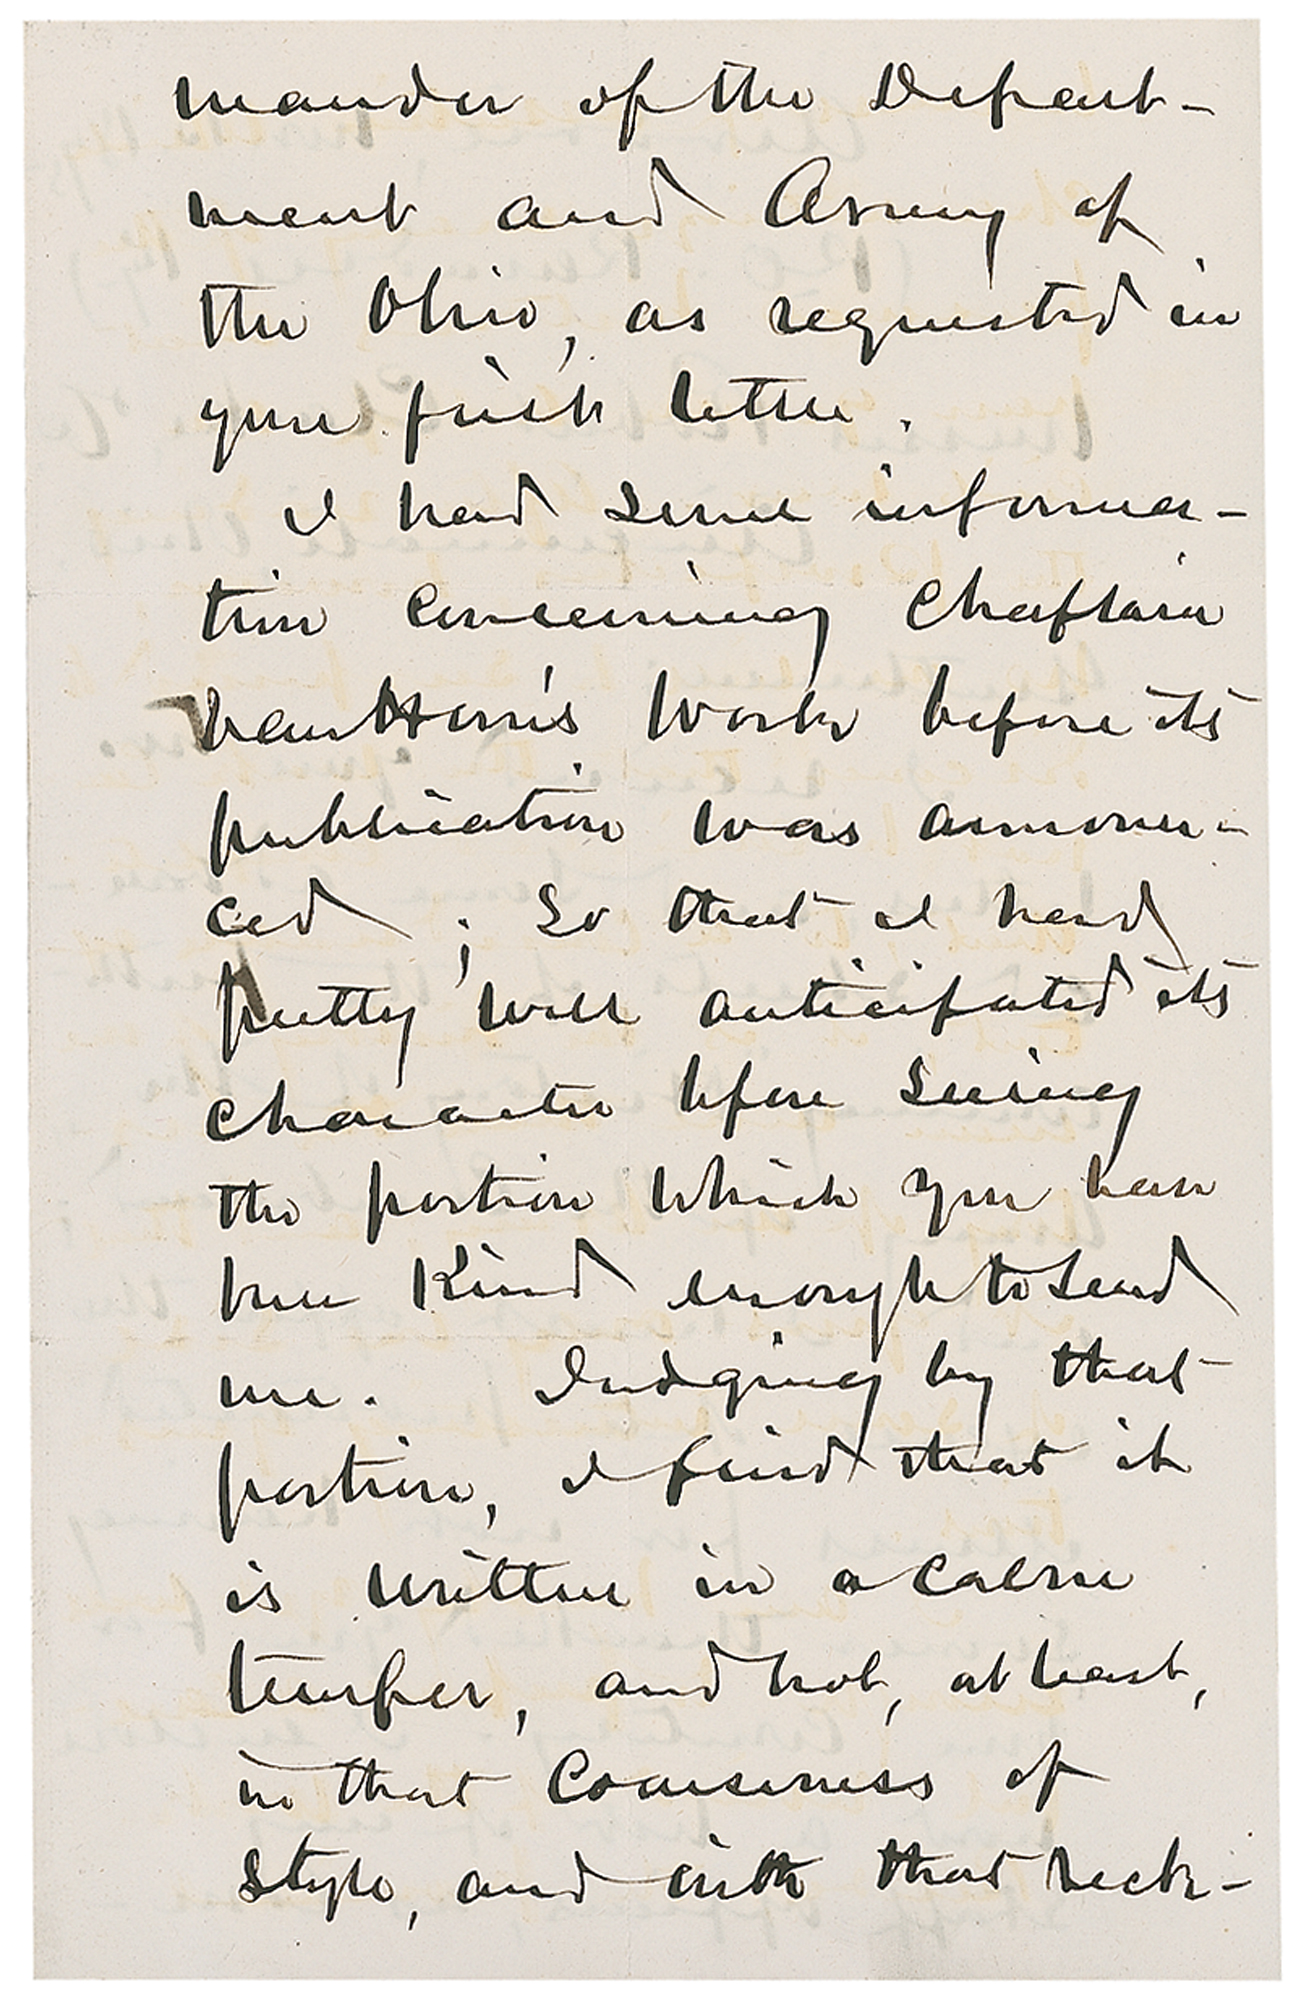 mander of the Depart-
ment and Army of
the Ohio, as requested in
your first letter.
I had some informa-
tion concerning Chaplain
Van Horn's Work before its
publication was announ-
ced; So that I had
pretty well anticipated its
character before seeing
the portion which you have
been Kind enough to send
me. Judging by that
portion, I find that it
is written in a calm
temper, and not, at least,
in that Coarseness of
style, and with that reck-